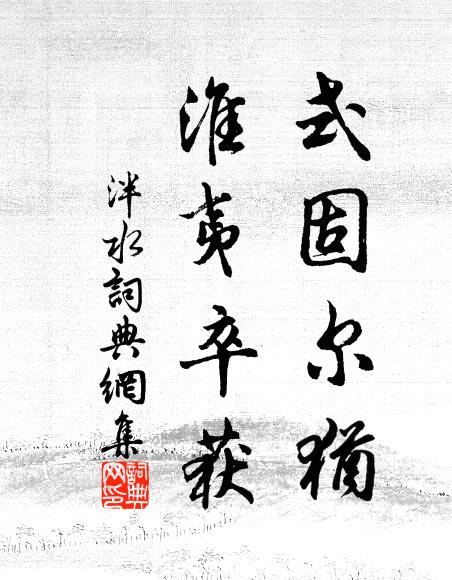 式固尔猶
淮夷卒获
泮水詞典網集
詞典网印